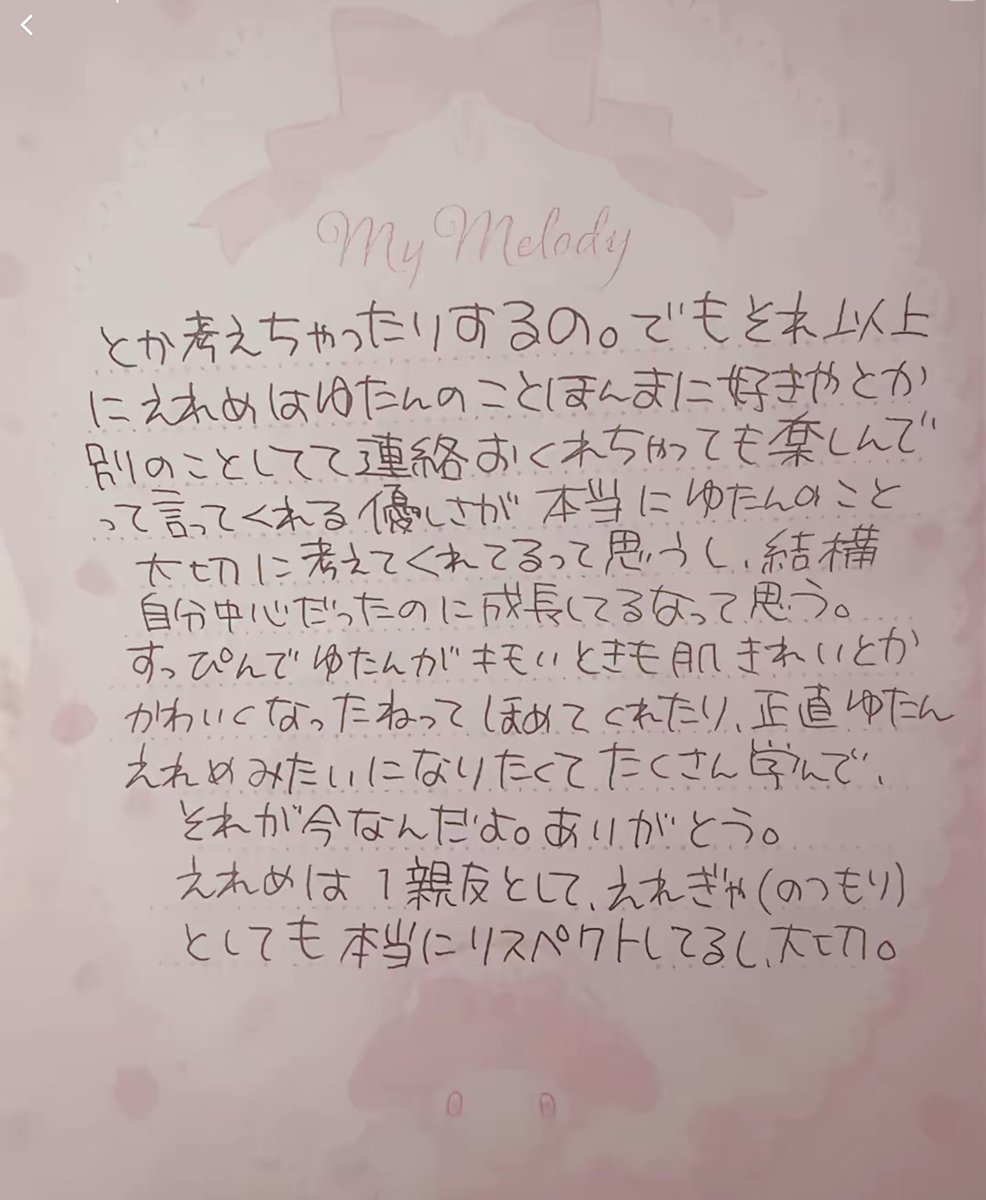 My Melody
とか考えちゃったりするの。でもそれ以上
にえれめはゆたんのことほんまに好きやとか
別のことしてて連絡おくれちゃっても楽しんで
って言ってくれる優しさが本当にゆたんのこと
大切に考えてくれてるって思うし、結構
自分中心だったのに成長してるなって思う。
すっぴんでゆたんがキモいときも肌きれいとか
かわいくなったねってほめてくれたり、正直ゆたん
えれめみたいになりたくてたくさん学んで、
それが今なんだよ。ありがとう。
えれめは1親友として、えれぎゃ(のつもり)
としても本当にリスペクトしてるし、大切。